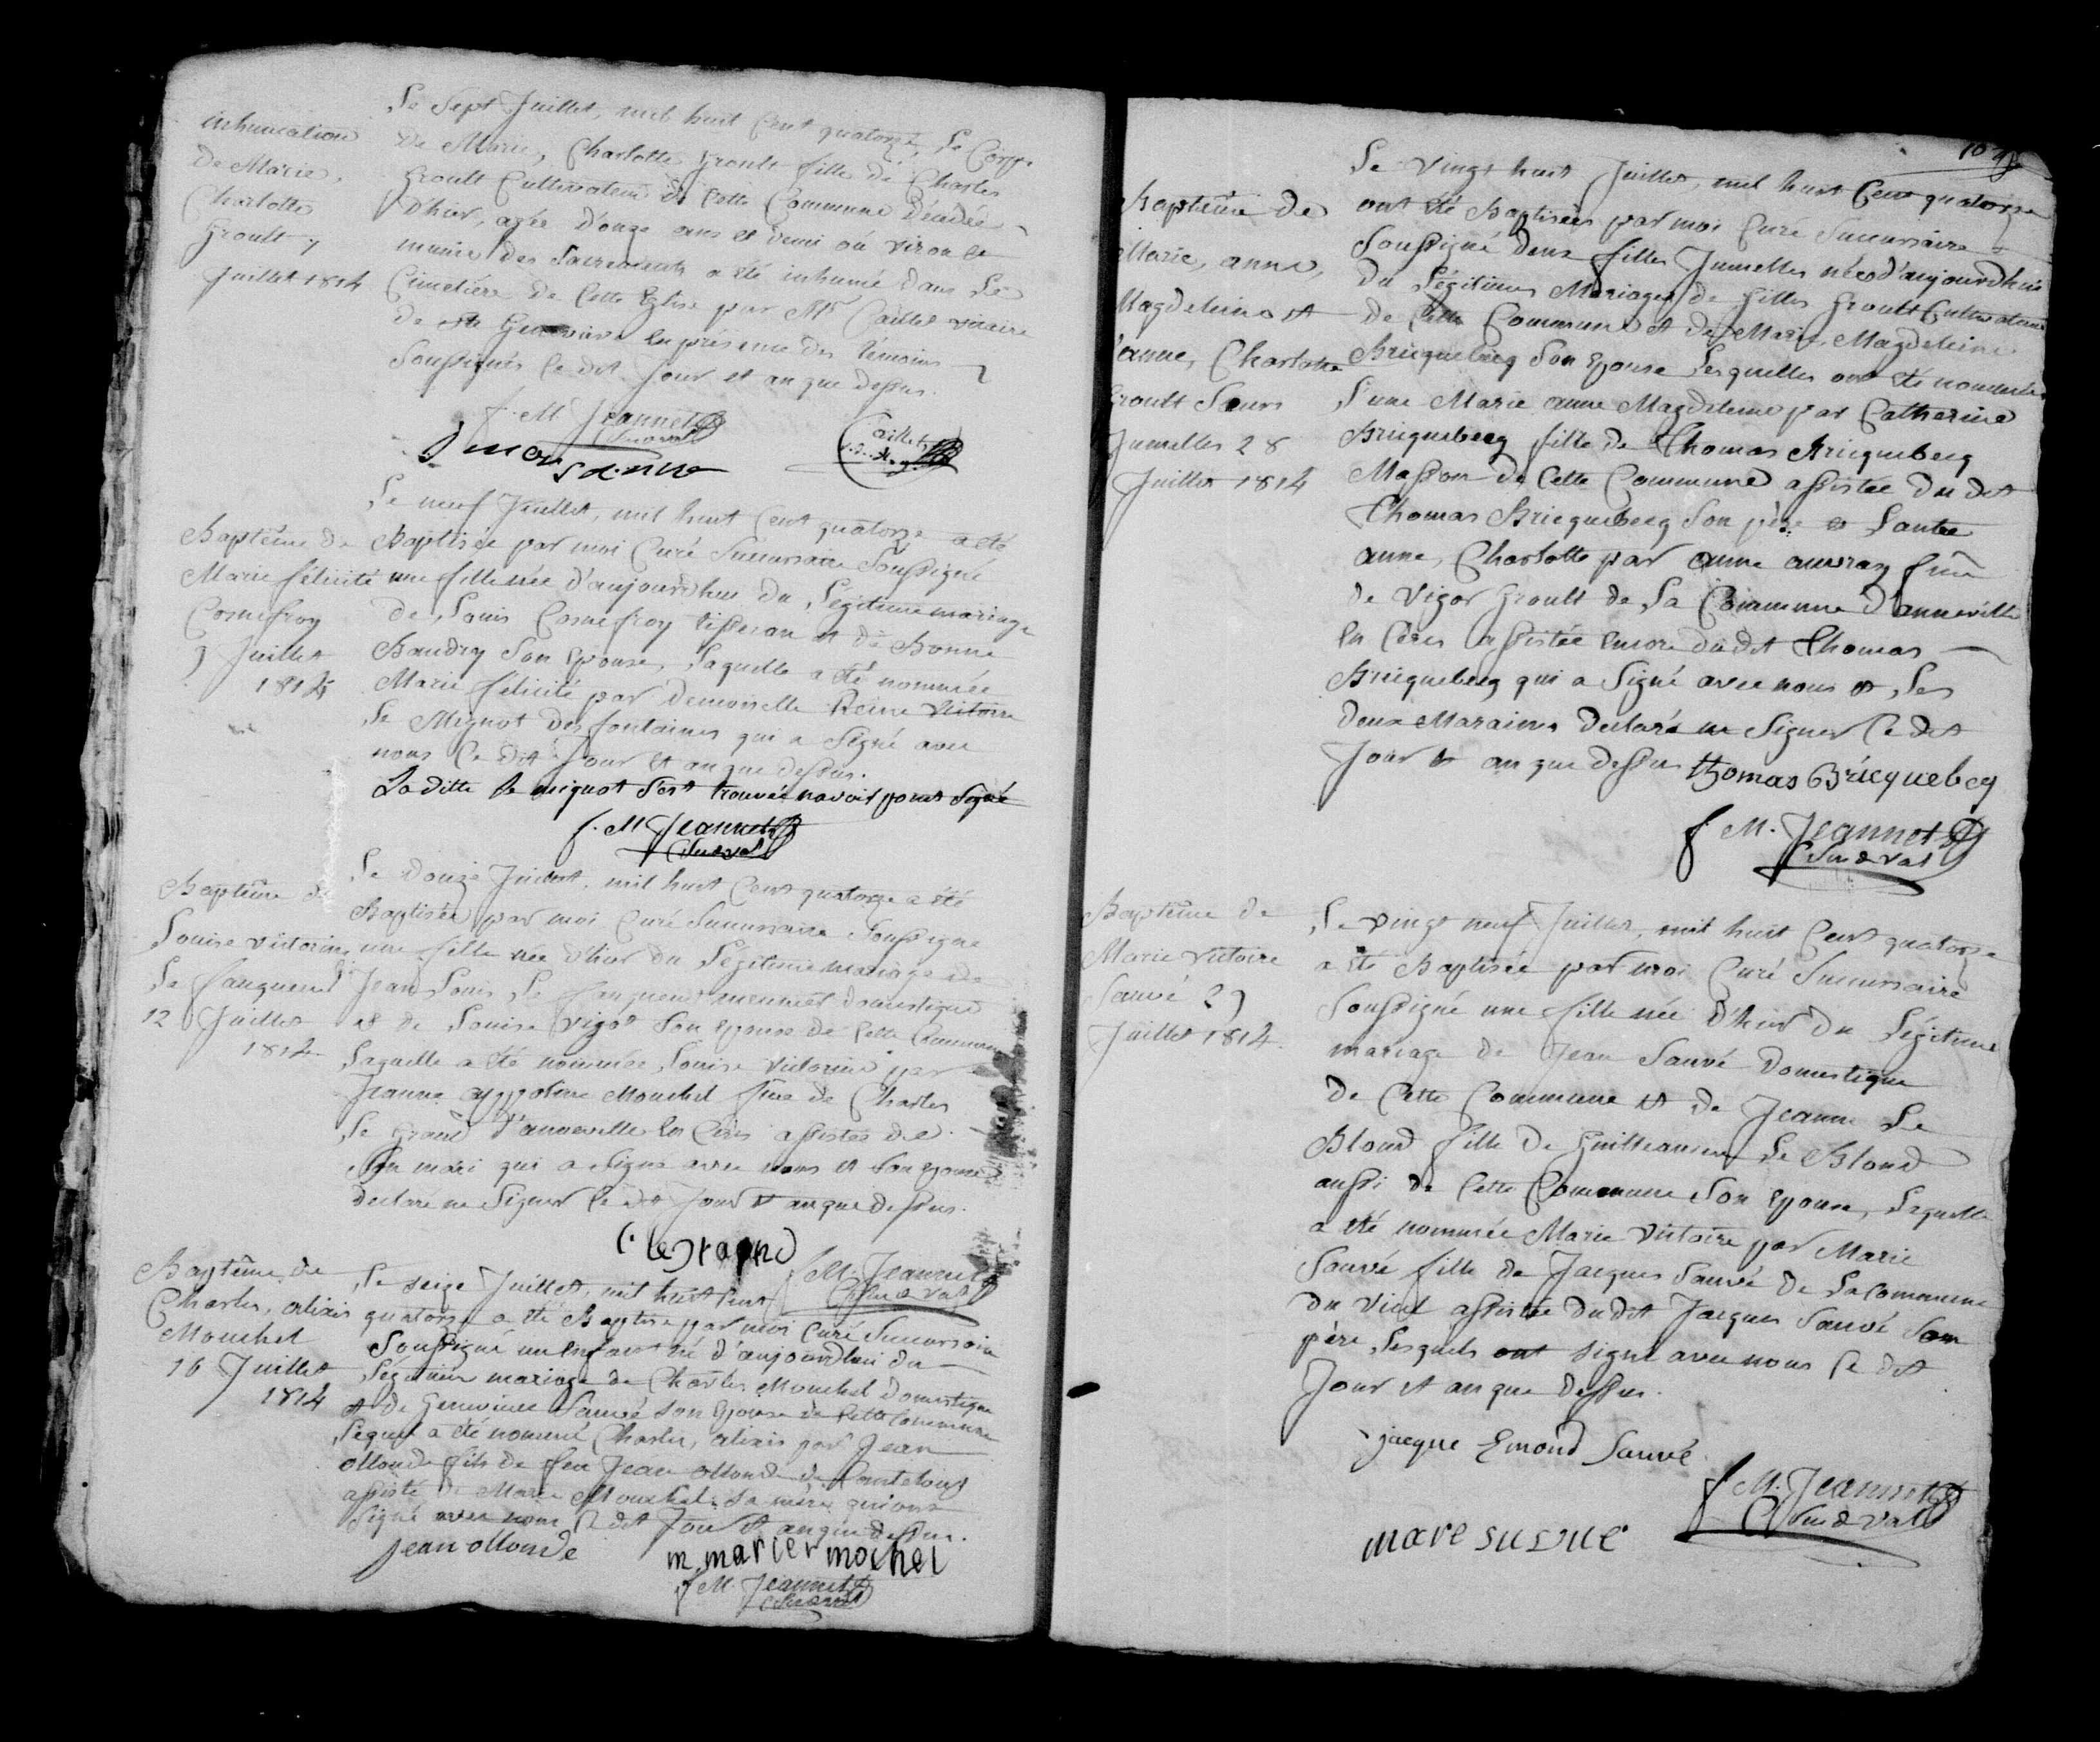 inhumation
de Marie,
Charlotte
Groult 7
Juillet 1814
Le Sept Juillet, mil huit Cent quatorze, Le Corps
de Marie, Charlotte Groult fille de Charles
Groult Cultivateur de Cette Commune décédée
d'hier, agée d'onze ans et demi ou viron
munie des Sacrements a été inhumé dans Le
Cimetière de Cette Eglise par Mr Caillet vicaire
de Ste Geneviève en présence des témoins
Soussignés Ce dit Jour et an que dessus.
f. M Jeannet
Caillet
Baptême de
Marie félicité
Cornefroy
9 Juillet
1814
Le neuf Juillet, mil huit Cent quatorze a été
Baptisée par moi Curé Sucursaire Soussigné
une fille née d'aujourdhui du Légitime mariage
de Louis Cornefroy tisseran et de Bonne
Baudry Son Epouse, Laquelle a été nommée
Marie félicité par demoiselle Reine Victoire
Le Mignot des fontaines qui a Signé avec
nous Ce dit Jour et an que dessus.
La ditte Le mignot s'est trouvée navoir point Signé
f. M Jeannet
Baptême de
Louise victorine
Le fauqueur
12 Juillet
1814
Le Douze Juillet, mil huit Cent quatorze a été
Baptisée par moi Curé Sucursaire Soussigné
une fille née d'hier du Légitime mariage de
Jean Louis Le fauqueur domestique
et de Louise Vigot Son Epouse de Cette Commune
Laquelle a été nommée Louise victorine par
Jeanne appoline Mouchel fme de Charles
Le Grand d'anneville En Cères assistée de
Son mari qui a Signé avec nous et Son Epouse
declaré ne Signer Ce dit Jour et an que dessus.
C. legrand
f. M. Jeannet
Baptême de
Charles, alixis
Mouchel
16 Juillet
1814
Le seize Juillet, mil huit Cent
quatorze a été Baptisé par moi Curé Sucursaire
Soussigné un Enfant né d'aujourdhui du
Légitime mariage de Charles Mouchel Domestique
et de Genevieve Sauvé Son Epouse de Cette Commune
Lequel a été nommé Charles, alixis par Jean
Ollonde fils de feu Jean Ollonde de Canteloup
assisté de Marie Mouchel Sa mère qui ont
Signé avec nous Ce dit Jour et an que dessus.
jean ollonde
m. marier mochel
f M. Jeannet
Baptême de
Marie, anne,
Magdeleine et
anne, Charlotte
Groult Sœurs
Jumelles 28
Juillet 1814
Le Vingt huit Juillet, mil huit Cent quatorze
ont été Baptisées par moi Curé Sucursaire
Soussigné deux filles Jumelles nées d'aujourdhui
du Légitime Mariage de Gilles Groult Cultivateur
de Cette Commune et de Marie Magdeleine
Bricquebecq Son Epouse Lesquelles ont été nommées
L'une Marie anne Magdeleine par Catherine
Bricquebecq fille de Thomas Bricquebecq
Masson de Cette Commune assistée du dit
Thomas Bricquebecq Son père et Lautre
anne, Charlotte par anne auvray fme
de Vigor Groult de La Commune d'anneville
En Cères assistée Encore du dit Thomas
Bricquebecq qui a Signé avec nous et Les
deux Maraines declaré ne Signer Ce dit
Jour et an que dessus thomas Bricquebeq
f M. Jeannet
Baptême de
Marie Victoire
Sauvé 29
Juillet 1814.
Le vingt neuf Juillet, mil huit Cent quatorze
a été Baptisée par moi Curé Sucursaire
Soussigné une fille née d'hier du Légitime
mariage de Jean Sauvé Domestique
de Cette Commune et de Jeanne Le
Blond fille de Guilleaume Le Blond
aussi de Cette Commune Son Epouse, Laquelle
a été nommée Marie Victoire par Marie
Sauvé fille de Jacques Sauvé de La Commune
du Vicel assistée du dit Jacques Sauvé Son
père, Lesquels ont signé avec nous Ce dit
Jour et an que dessus.
jacque Emond Sauvé
f M. Jeannet